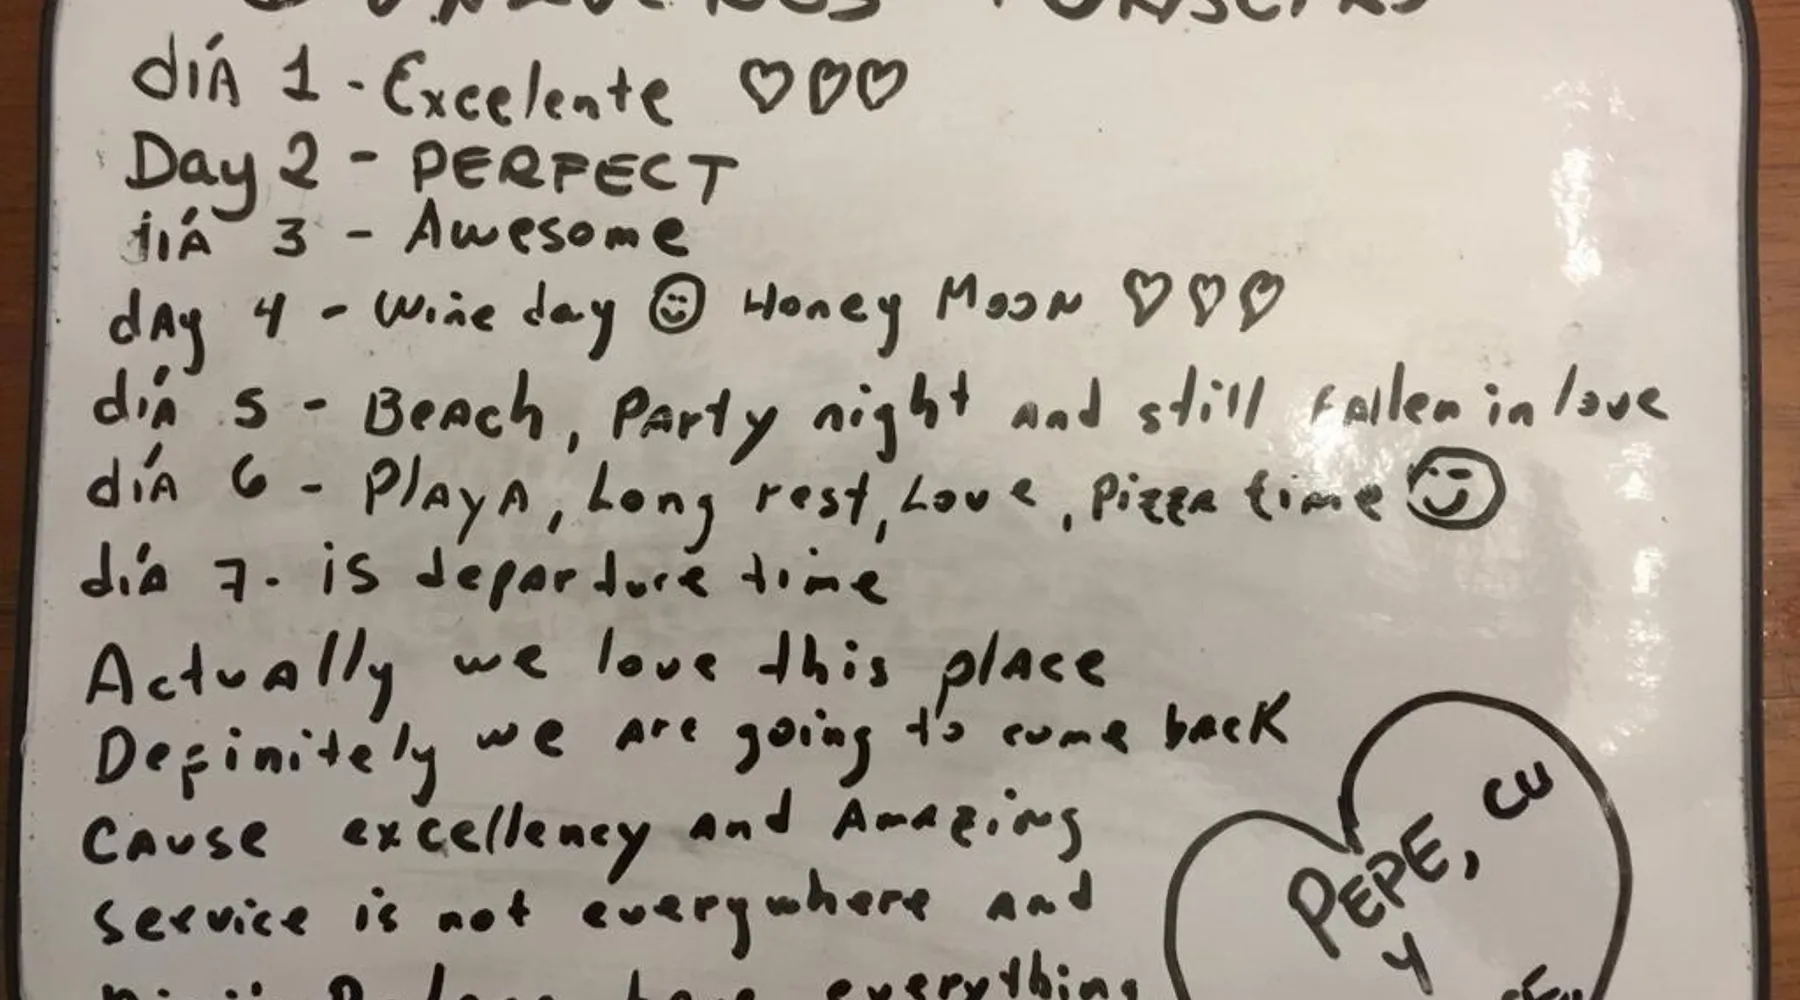 día 1 - Excelente ♡♡♡
Day 2 - PERFECT
día 3 - Awesome
day 4 - Wine day ☺ Honey Moon ♡♡♡
día 5 - Beach, Party night and still fallen in love
día 6 - Playa, Long rest, Love, Pizza time ☺
día 7. is departure time
Actually we love this place
Definitely we are going to come back
Cause excellency and Amazing
service is not everywhere and
everything
PEPE, CU
Y